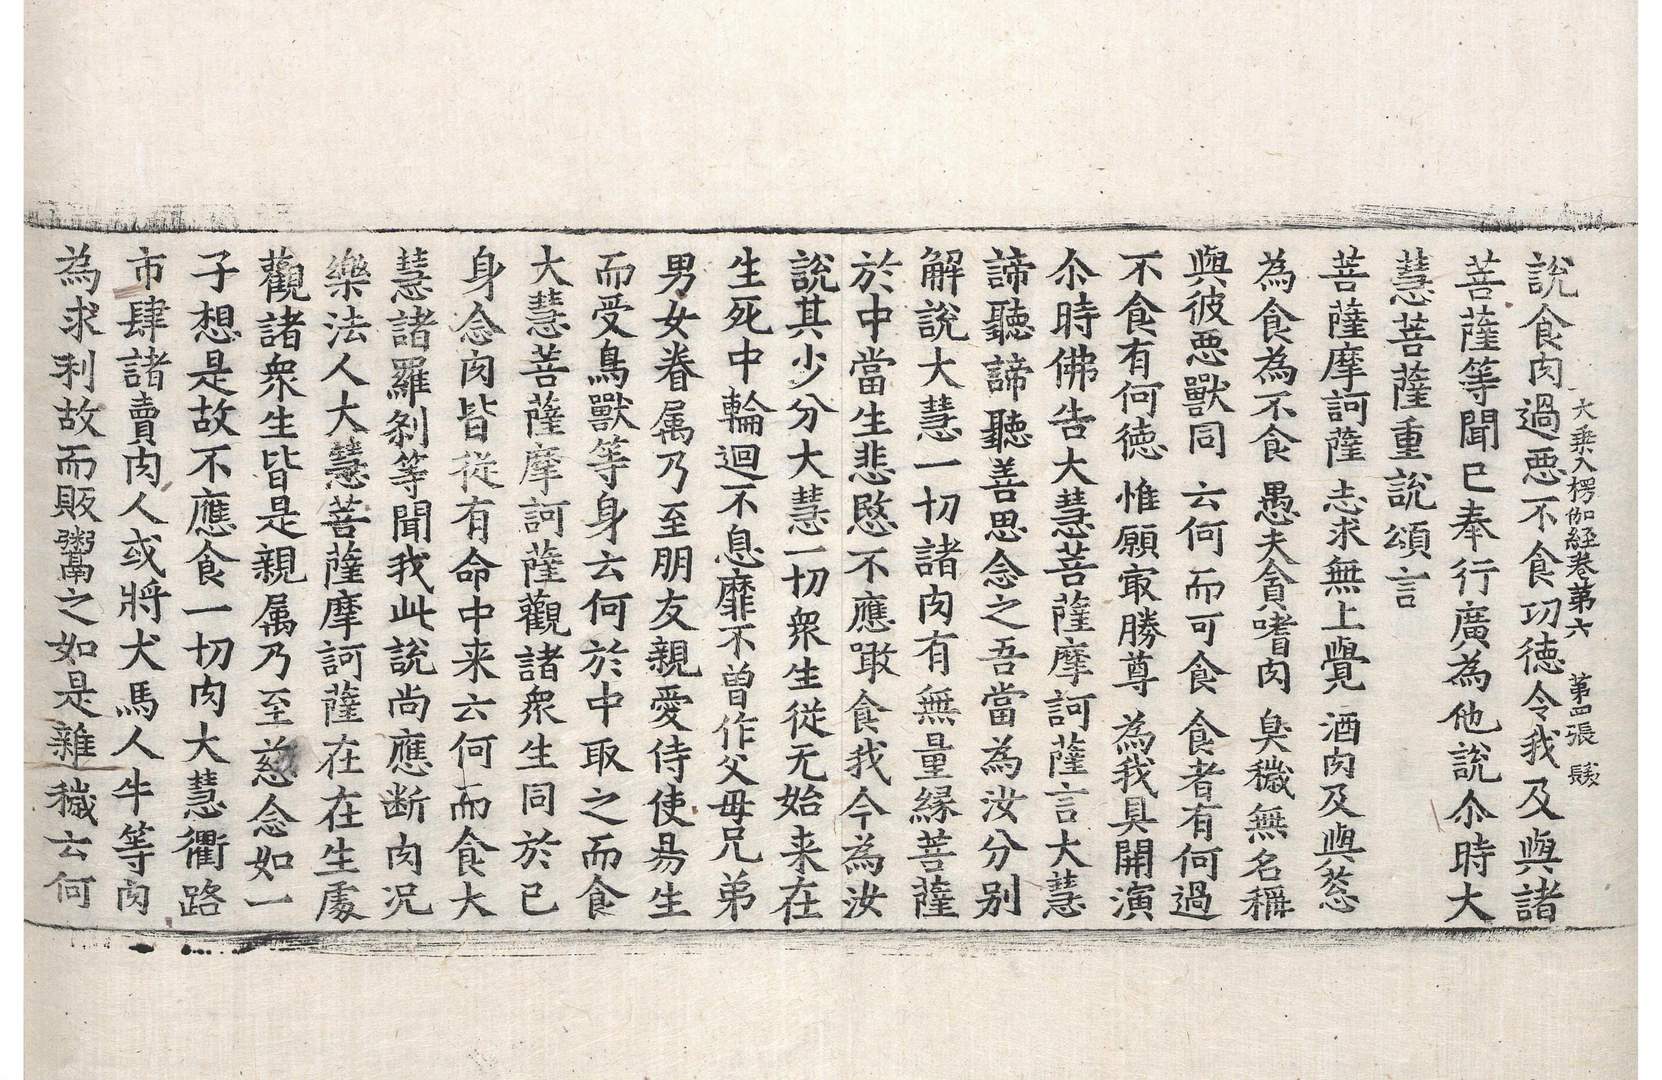 大乗入楞伽経卷第六 第四張 髮
說食肉過惡不食功德令我及與諸
菩薩等聞已奉行廣為他說尒時大
慧菩薩重說頌言
菩薩摩訶薩 志求無上覺 酒肉及與葱
為食為不食 愚夫貪嗜肉 臭穢無名稱
與彼惡獸同 云何而可食 食者有何過
不食有何德 惟願㝡勝尊 為我具開演
尒時佛告大慧菩薩摩訶薩言大慧
諦聽諦聽善思念之吾當為汝分別
解說大慧一切諸肉有無量緣菩薩
於中當生悲愍不應噉食我今為汝
說其少分大慧一切衆生從无始来在
生死中輪迴不息靡不曾作父母兄弟
男女眷属乃至朋友親愛侍使易生
而受鳥獸等身云何於中取之而食
大慧菩薩摩訶薩觀諸衆生同於已
身念肉皆從有命中来云何而食大
慧諸羅剎等聞我此說尚應断肉況
樂法人大慧菩薩摩訶薩在在生處
觀諸衆生皆是親属乃至慈念如一
子想是故不應食一切肉大慧衢路
市肆諸賣肉人或將犬馬人牛等肉
為求利故而販鬻之如是雜穢云何